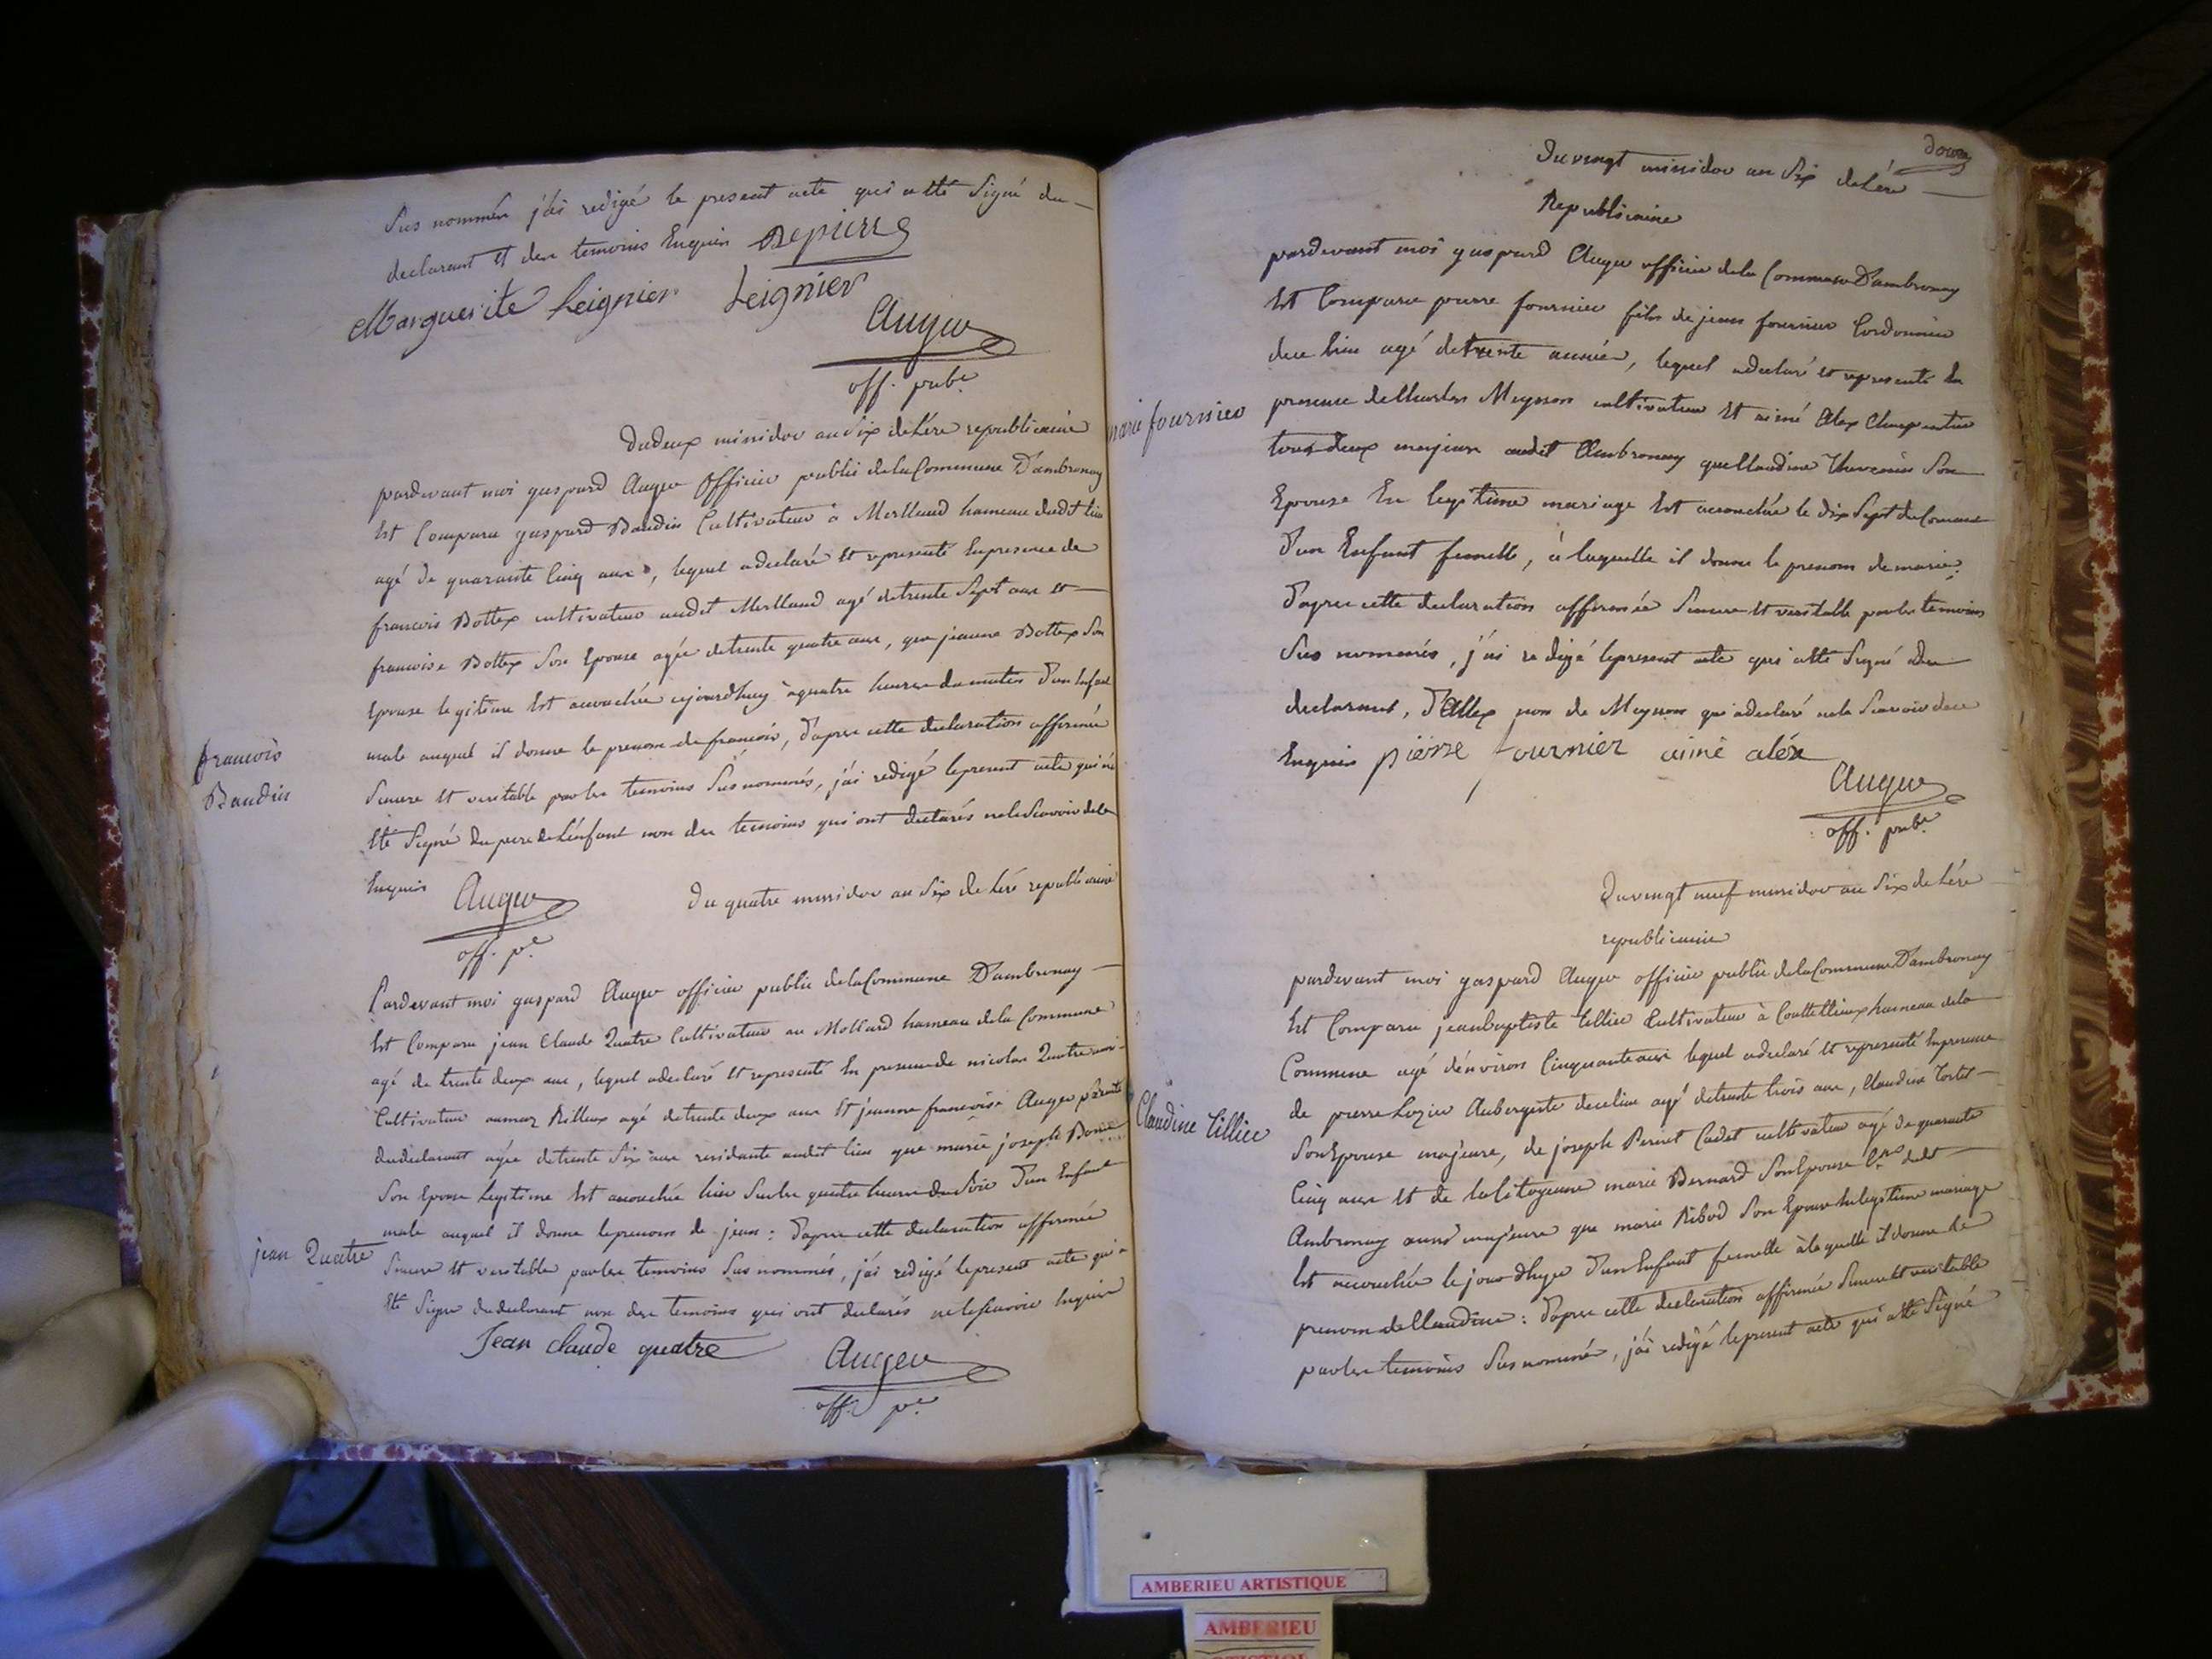 Sus nommés j'ai redigé le present acte qui a été Signé du
declarant et des temoins Enquis Depierre
Marguerite Leignier Leignier
Auger
off. pub.
Du deux missidor an Six de l'ére republicaine
pardevant moi gaspard Auger Officier public de la Commune D'ambronay
Est Comparu gaspard Baudin Cultivateur à Merlland hameau dudt lieu
agé de quarante Cinq ans, lequel a declaré et representé En presence de
francois Bottex cultivateur audit Merlland agé de trente Sept ans et
francoise Bottex Son Epouse agée de trente quatre ans, que jeanne Bottex Son
Epouse legitime Est accouchée ajourdhuy à quatre heures du matin d'un Enfant
male auquel il donne le prenom de francois, d'aprés cette declaration affirmée
francois
Baudin
Sincere et veritable par les temoins Sus nommés, j'ai redigé le present acte qui n'a
Eté Signé du pere de L'enfant non des temoins qui ont declarés ne le Scavoir de ce
Enquis Auger
off. p.e
Du quatre missidor an Six de l'éré republicaine
Pardevant moi gaspard Auger officier public de la Commune D'ambronay
Est Comparu jean Claude Quatre Cultivateur au Mollard hameau de la Commune
agé de trente deux ans, lequel a declaré et representé En presence de nicolas Quatre
Cultivateur au mas Rilleux agé de trente deux ans Et jeanne francoise Auger parente
du declarant agée de trente Six ans residante audit lieu que marie joseph
Son Epouse Legitime Est accouchée hier Sur les quatre heures du Soir d'un Enfant
male auquel il donne le prenom de jean : d'aprés cette declaration affirmée
jean Quatre
Sincere et veritable par les temoins Sus nommés, j'ai redigé le present acte qui a
Eté Signé du declarant non des temoins qui ont declarés ne le Scavoir Enquis
Jean claude quatre
Auger
off. p.e
douze
Du vingt missidor an Six de L'ére
Republicaine
pardevant moi gaspard Auger officier de la Commune D'ambronay
Est Comparu pierre fournier fils de jean fournier Cordonnier
de ce lieu agé de trente années, lequel a declaré et representé En
presence de Charles Meynson cultivateur Et aimé Alex Charpentier
marie fournier
tous deux majeurs audit Ambronay que Claudine Son
Epouse En legitime mariage Est accouchée le dix Sept du Courant
d'un Enfant femelle, à laquelle il donne le prenom de marie :
d'aprés cette declaration affirmée Sincere Et veritable par les temoins
Sus nommés, j'ai redigé le present acte qui a été Signé du
declarant, d'Allex non de Meynson qui a declaré ne le Scavoir de ce
Enquis pierre fournier aimé aléx
Auger
off. pub.
Du vingt neuf missidor an Six de L'ére
republicaine
pardevant moi gaspard Auger officier public de la Commune D'ambronay
Est Comparu jean baptiste tillier Cultivateur à Couttellieux hameau de la
Commune agé d'environ Cinquante ans lequel a declaré Et representé En presence
de pierre Lozier Aubergiste de ce lieu agé de trente trois ans, Claudine
Claudine tillier
Son Epouse majeure, de joseph Cadet cultivateur agé de quarante
Cinq ans Et de la Citoyenne marie Bernard Son Epouse dudt
Ambronay aussi majeure que marie Ribod Son Epouse En legitime mariage
Est accouchée le jour dhyer d'un Enfant femelle à laquelle il donne le
prenom de Claudine : d'aprés cette declaration affirmée Sincere Et veritable
par les temoins Sus nommés, j'ai redigé le present acte qui a été Signé
AMBERIEU ARTISTIQUE
AMBERIEU